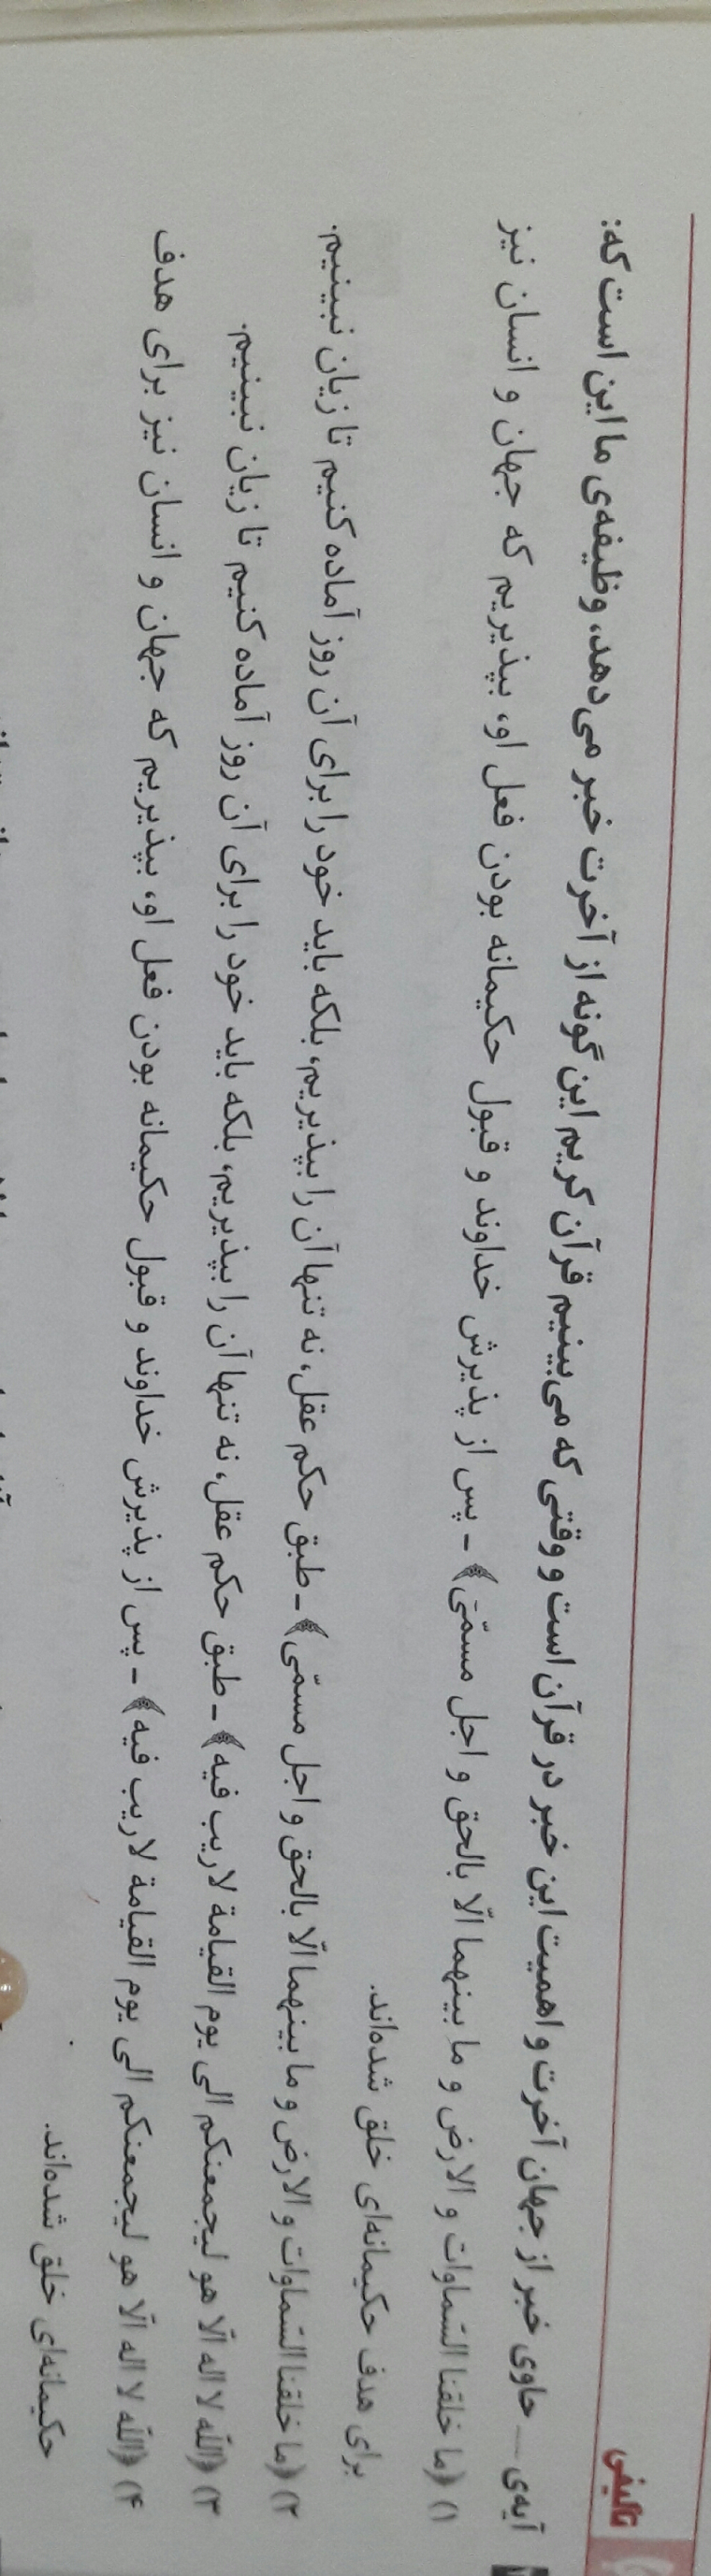 تالیفی
آیه‌ی ... حاوی خبر از جهان آخرت و اهمیت این خبر در قرآن است و وقتی که می‌بینیم قرآن کریم این گونه از آخرت خبر می‌دهد، وظیفه‌ی ما این است که:
۱) ﴿ما خلقنا السّماوات و الارض و ما بینهما الّا بالحق و اجل مسمّی﴾ - پس از پذیرش خداوند و قبول حکیمانه بودن فعل او، بپذیریم که جهان و انسان نیز
برای هدف حکیمانه‌ای خلق شده‌اند.
۲) ﴿ما خلقنا السّماوات و الارض و ما بینهما الّا بالحق و اجل مسمّی﴾ - طبق حکم عقل، نه تنها آن را بپذیریم، بلکه باید خود را برای آن روز آماده کنیم تا زیان نبینیم.
۳) ﴿اللّه لا اله الّا هو لیجمعنکم الی یوم القیامة لاریب فیه﴾ - طبق حکم عقل، نه تنها آن را بپذیریم، بلکه باید خود را برای آن روز آماده کنیم تا زیان نبینیم.
۴) ﴿اللّه لا اله الّا هو لیجمعنکم الی یوم القیامة لاریب فیه﴾ - پس از پذیرش خداوند و قبول حکیمانه بودن فعل او، بپذیریم که جهان و انسان نیز برای هدف
حکیمانه‌ای خلق شده‌اند.